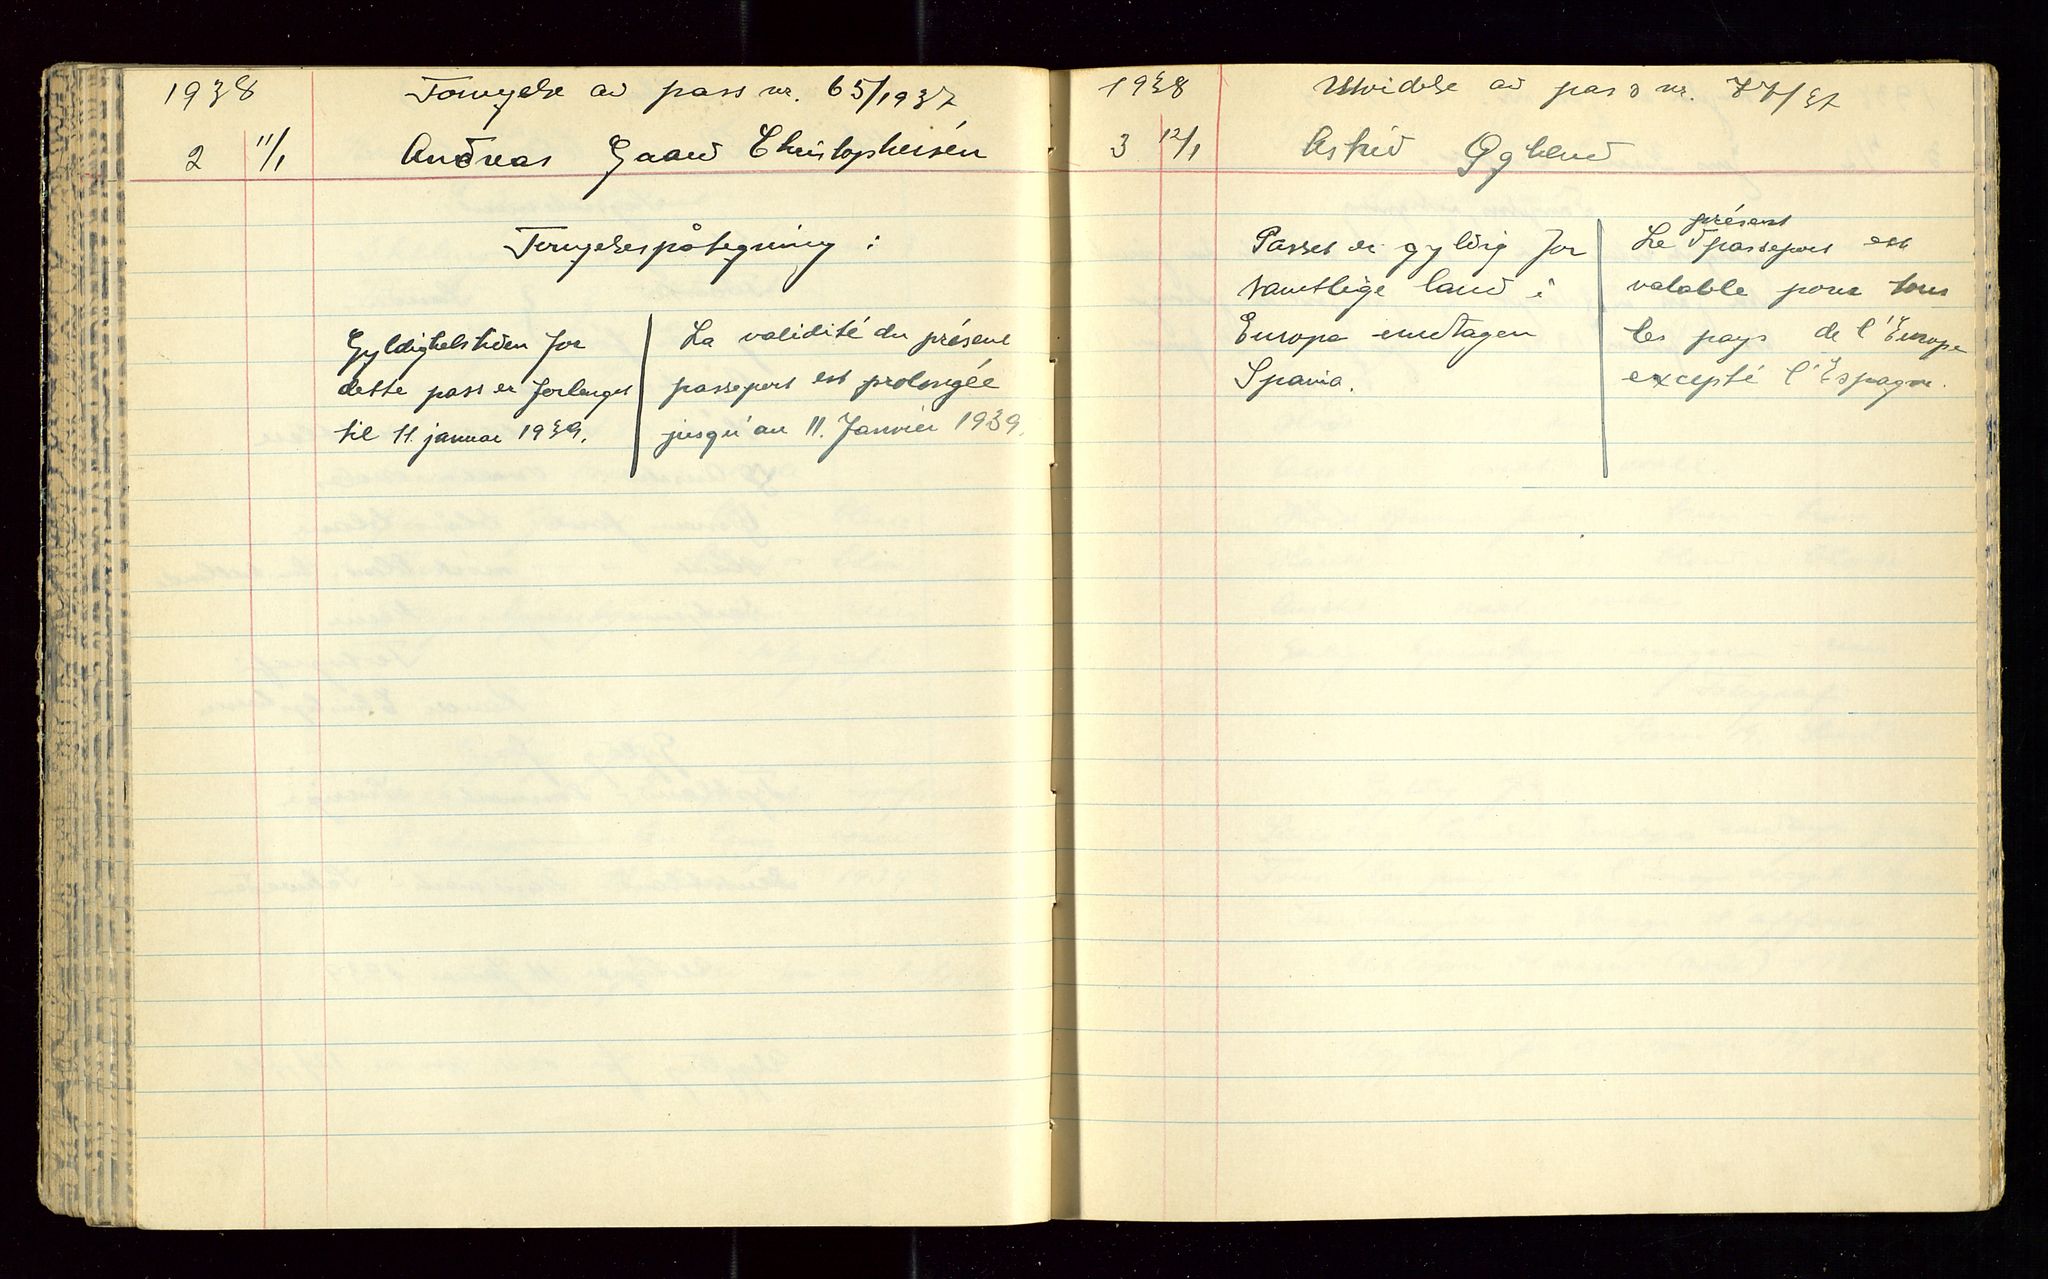 1938 Fornyelse av pass nr. 65/1937
2 11/1 Andreas Gaard Christophersen
Fornyelsespåtegning:
Gyldighetstiden for
dette pass er forlenget
til 11. januar 1939.
La validité du présent
passeport est prolongée
jusqu'au 11. Janvier 1939.
1938 Utvidelse av pass nr. 77/37
3 12/1 Astrid Øglend
Passet er gyldig for
samtlige land i
Europa unntagen
Spania.
présent
Le passeport est
valable pour tous
les pays de l'Europe
excepté l'Espagne.